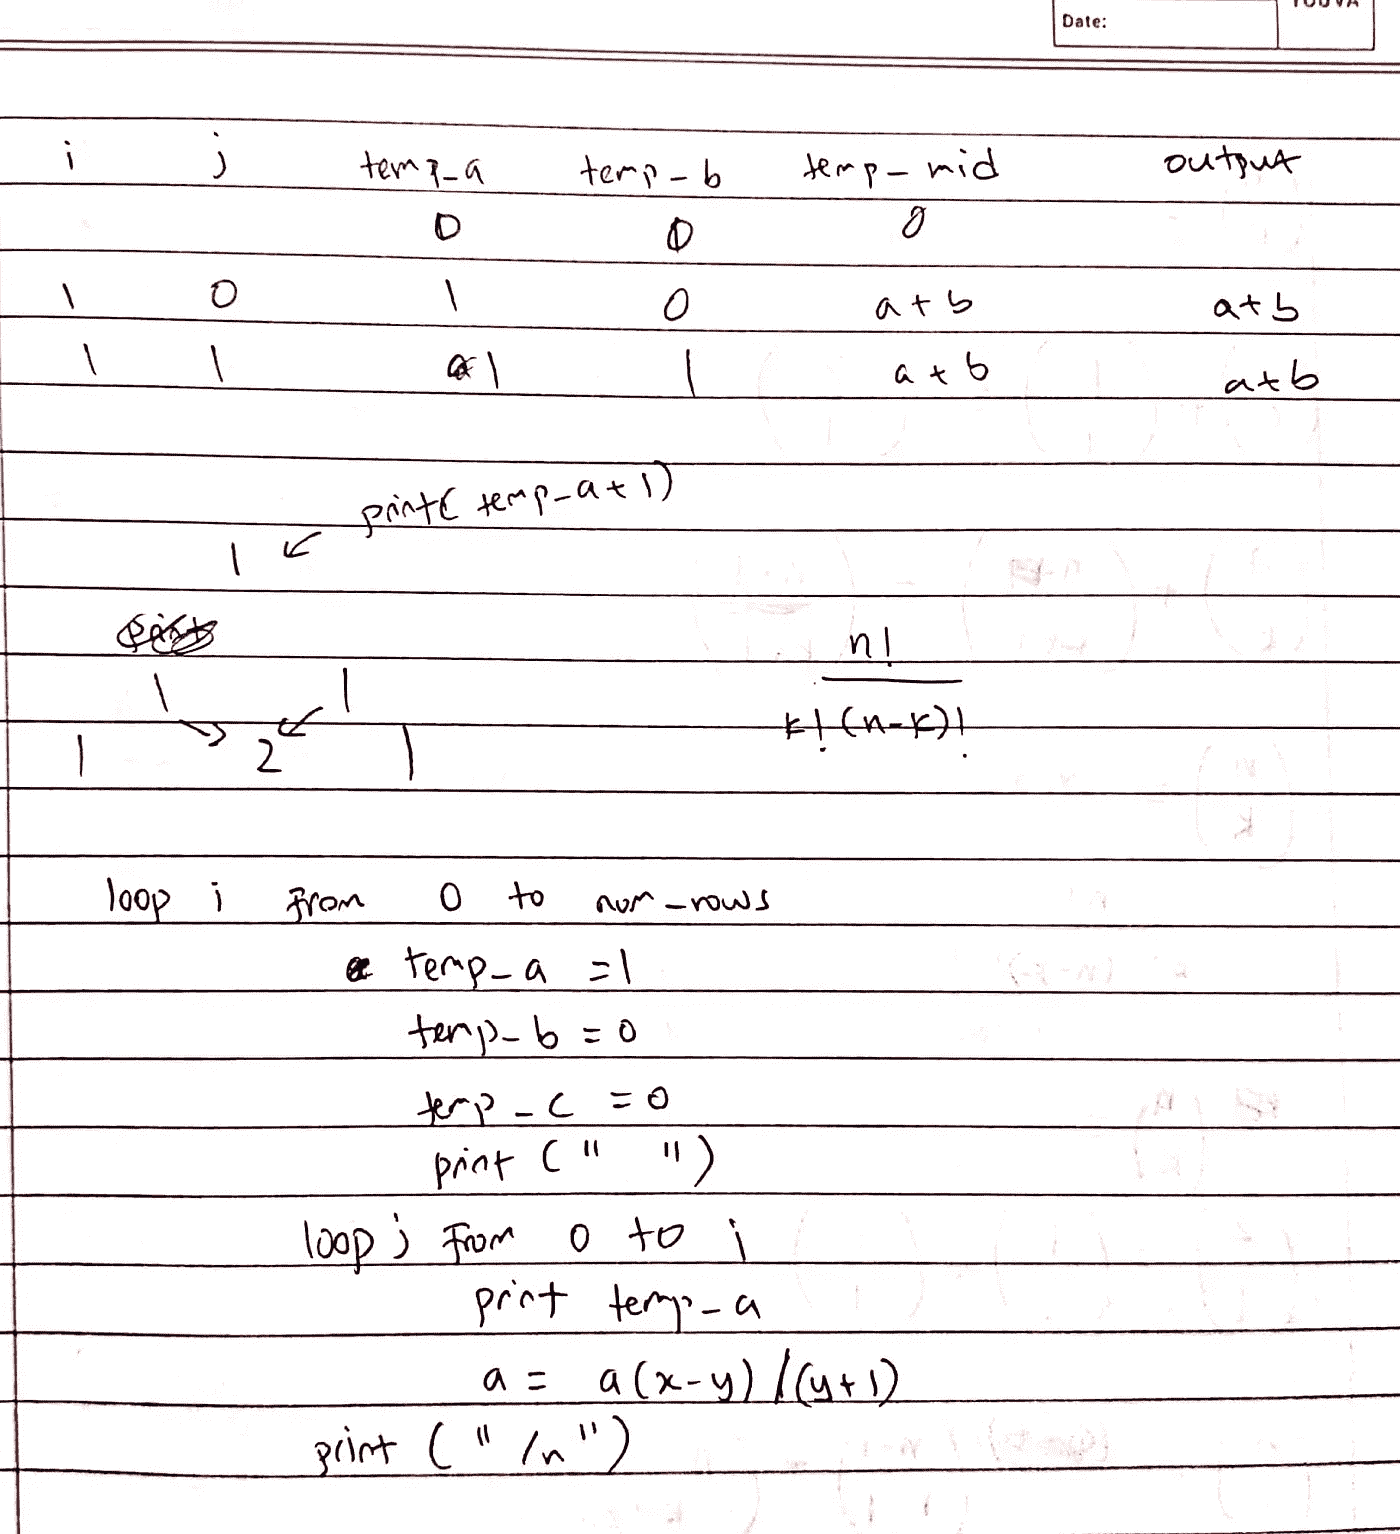 YOUVA
Date:
i j temp_a temp_b temp_mid output
0 0 0
1 0 1 0 a+b a+b
1 1 1 1 a+b a+b
print(temp_a+1)
1
n!
1 1
k!(n-k)!
1 2 1
loop i from 0 to num_rows
temp_a =1
temp_b =0
temp_c =0
print (" ")
loop j from 0 to i
print temp_a
a = a(x-y)/(y+1)
print ("/n")